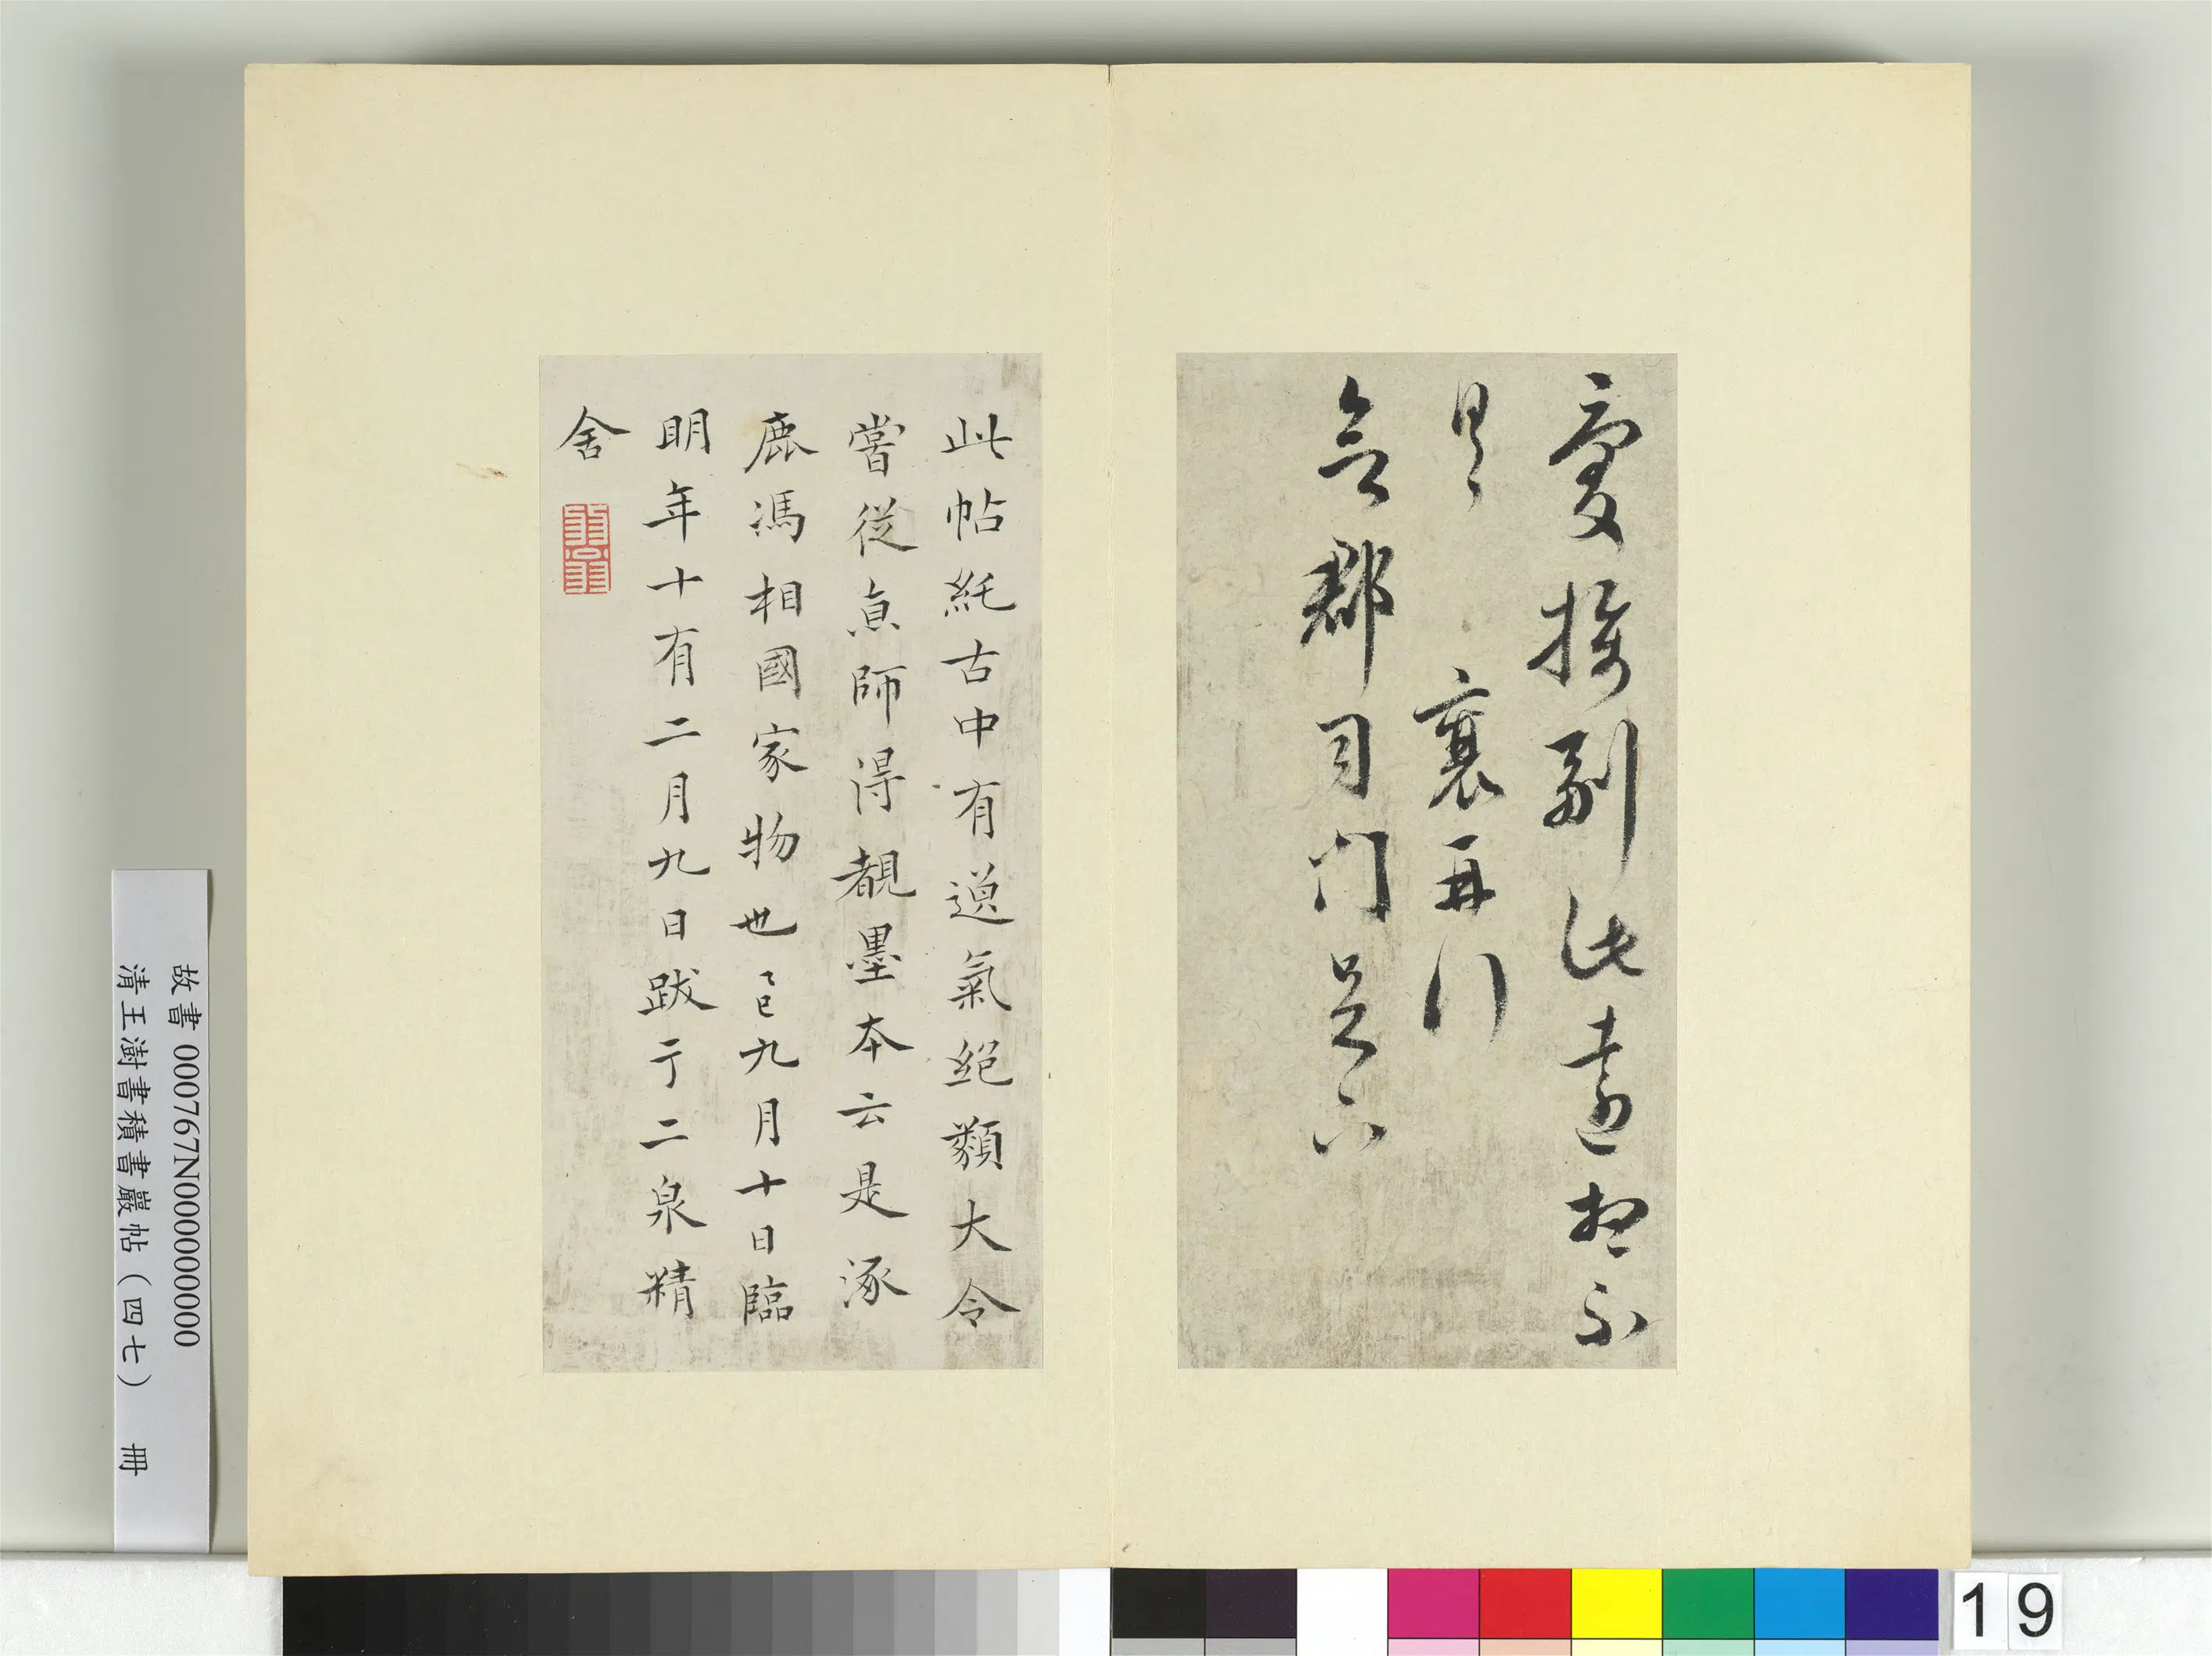 憂撓副此遠想不
具　襄再行
郡司門足下
此帖純古中有遒氣絕類大令
嘗從真師得覩墨本云是涿
鹿馮相國家物也乙巳九月十日臨
明年十有二月九日跋于二泉精
舍
故書 000767N000000000
清王澍書積書巖帖（四七）　冊
19